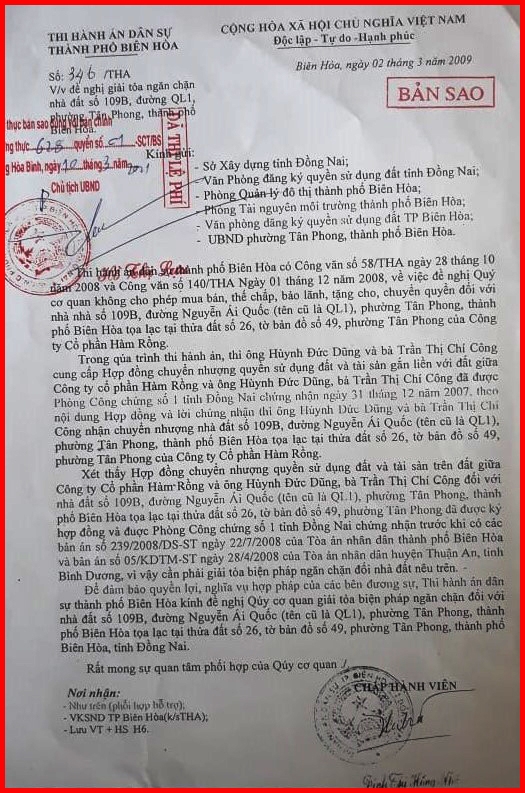 THI HÀNH ÁN DÂN SỰ
THÀNH PHỐ BIÊN HÒA
CỘNG HÒA XÃ HỘI CHỦ NGHĨA VIỆT NAM
Độc lập - Tự do - Hạnh phúc
Số: 346/THA
Biên Hòa, ngày 02 tháng 3 năm 2009
V/v đề nghị giải tỏa ngăn chặn
nhà đất số 109B, đường QL1,
phường Tân Phong, thành phố
Biên Hòa.
BẢN SAO
thực bản sao đúng với bản chính
thực 628 quyển số 01 -SCT/BS
Hòa Bình, ngày 10 tháng 3 năm 2021
Chủ tịch UBND
ĐÃ THU LỆ PHÍ
Kính gửi:
- Sở Xây dựng tỉnh Đồng Nai;
- Văn Phòng đăng ký quyền sử dụng đất tỉnh Đồng Nai;
- Phòng Quản lý đô thị thành phố Biên Hòa;
- Phòng Tài nguyên môi trường thành phố Biên Hòa;
- Văn phòng đăng ký quyền sử dụng đất TP Biên Hòa;
- UBND phường Tân Phong, thành phố Biên Hòa.
Thi hành án dân sự thành phố Biên Hòa có Công văn số 58/THA ngày 28 tháng 10
năm 2008 và Công văn số 140/THA Ngày 01 tháng 12 năm 2008, về việc đề nghị Quý
cơ quan không cho phép mua bán, thế chấp, bảo lãnh, tặng cho, chuyển quyền đối với
nhà nhà số 109B, đường Nguyễn Ái Quốc (tên cũ là QL1), phường Tân Phong, thành
phố Biên Hòa tọa lạc tại thửa đất số 26, tờ bản đồ số 49, phường Tân Phong của Công
ty Cổ phần Hàm Rồng.
Trong qúa trình thi hành án, thì ông Hùynh Đức Dũng và bà Trần Thị Chí Công
cung cấp Hợp đồng chuyển nhượng quyền sử dụng đất và tài sản gắn liền với đất giữa
Công ty cổ phần Hàm Rồng và ông Hùynh Đức Dũng, bà Trần Thị Chí Công đã được
Phòng Công chứng số 1 tỉnh Đồng Nai chứng nhận ngày 31 tháng 12 năm 2007, theo
nội dung Hợp đồng và lời chứng nhận thì ông Hùynh Đức Dũng và bà Trần Thị Chí
Công nhận chuyển nhượng nhà đất số 109B, đường Nguyễn Ái Quốc (tên cũ là QL1),
phường Tân Phong, thành phố Biên Hòa tọa lạc tại thửa đất số 26, tờ bản đồ số 49,
phường Tân Phong của Công ty Cổ phần Hàm Rồng.
Xét thấy Hợp đồng chuyển nhượng quyền sử dụng đất và tài sản trên đất giữa
Công ty Cổ phần Hàm Rồng và ông Hùynh Đức Dũng, bà Trần Thị Chí Công đối với
nhà đất số 109B, đường Nguyễn Ái Quốc (tên cũ là QL1), phường Tân Phong, thành
phố Biên Hòa tọa lạc tại thửa đất số 26, tờ bản đồ số 49, phường Tân Phong đã được ký
hợp đồng và đuợc Phòng Công chứng số 1 tỉnh Đồng Nai chứng nhận trước khi có các
bản án số 239/2008/DS-ST ngày 22/7/2008 của Tòa án nhân dân thành phố Biên Hòa
và bản án số 05/KDTM-ST ngày 28/4/2008 của Tòa án nhân dân huyện Thuận An, tỉnh
Bình Dương, vì vậy cần phải giải tỏa biện pháp ngăn chặn đối nhà đất nêu trên. -
Để đảm bảo quyền lợi, nghĩa vụ hợp pháp của các bên đương sự, Thi hành án dân
sự thành phố Biên Hòa kính đề nghị Qúy cơ quan giải tỏa biện pháp ngăn chặn đối với
nhà đất số 109B, đường Nguyễn Ái Quốc (tên cũ là QL1), phường Tân Phong, thành
phố Biên Hòa tọa lạc tại thửa đất số 26, tờ bản đồ số 49, phường Tân Phong, thành phố
Biên Hòa, tỉnh Đồng Nai.
Rất mong sự quan tâm phối hợp của Qúy cơ quan ./.
Nơi nhận:
- Như trên (phối hợp hỗ trợ);
- VKSND TP Biên Hòa(k/sTHA);
- Lưu VT + HS H6.
CHẤP HÀNH VIÊN
Đinh Thị Hồng